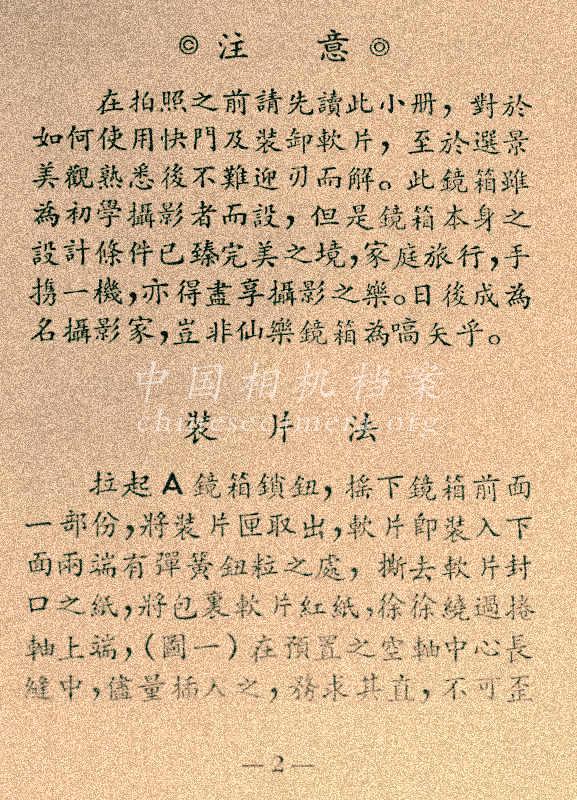 ◎注 意◎
在拍照之前請先讀此小册，對於
如何使用快門及裝卸軟片，至於選景
美觀熟悉後不難迎刃而解。此鏡箱雖
為初學攝影者而設，但是鏡箱本身之
設計條件已臻完美之境，家庭旅行，手
携一機，亦得盡享攝影之樂。日後成為
名攝影家，豈非仙樂鏡箱為嚆矢乎。
中国相机档案
chinesecamera.org
裝 片 法
拉起A鏡箱鎖鈕，搖下鏡箱前面
一部份，將裝片匣取出，軟片卽裝入下
面兩端有彈簧鈕粒之處，撕去軟片封
口之紙，將包裹軟片紅紙，徐徐繞過捲
軸上端，(圖一)在預置之空軸中心長
縫中，儘量插入之，務求其直，不可歪
—2—